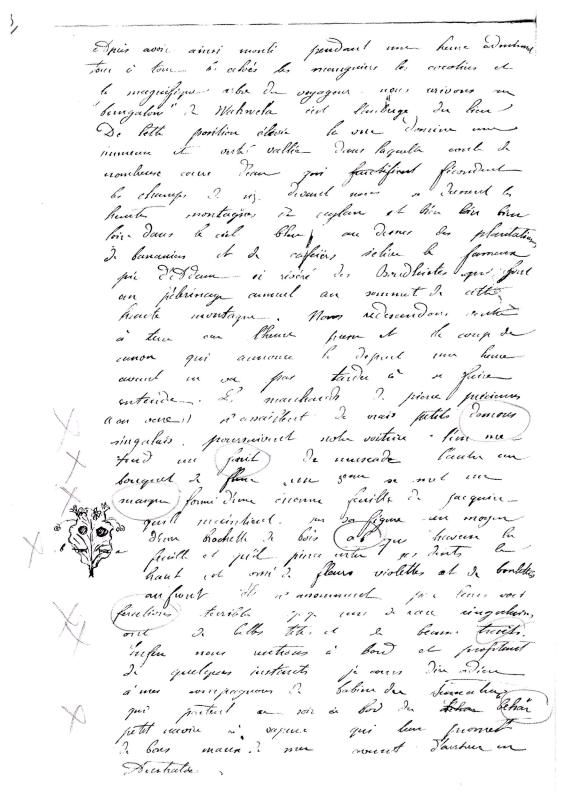 Après avoir ainsi monté pendant une heure admirant
tour à tour les les manguiers les cocotiers et
le magnifique arbre du voyageur nous arrivons au
"bungalow" de Wakwela c'est l'auberge du lieu
De cette position élevée la vue domine une
immense et vallée dans laquelle coule de
nombreux cours d'eau qui fructifient fécondent
les champs de riz. devant nous se dressent les
hautes montagnes de ceylan et bien bien bien
loin dans le ciel bleu au dessus des plantations
de bananiers et de caféiers s'élève le fameux
pic d'Addam si révéré des Boudhistes qui font
un pèlerinage annuel au sommet de cette
haute montagne. Nous redescendons
à terre car l'heure presse et le coup de
canon qui annonce le départ une heure
avant ne va pas tarder à se faire
entendre. Les marchands de pierres précieuses
nous assaillent de vrais petits démons
singalais poursuivent notre voiture l'un me
tend un fruit de muscade l'autre un
bouquet de fleurs un se met un
masque formé d'une énorme feuille de
qu'il maintient sur sa figure au moyen
d'une brochette de bois qui traverse la
feuille et qu'il pince entre ses dents le
haut est orné de fleurs violettes et de boulettes
au front
terrible de race singalaise
ont de belles têtes et de beaux traits.
Enfin nous rentrons à bord et profitant
de quelques instants je cours dire adieu
à mes compagnons de cabine du
qui partent ce soir à bord du
petit navire à vapeur qui leur promet
de bons maux de mer avant d'arriver en
Australie.